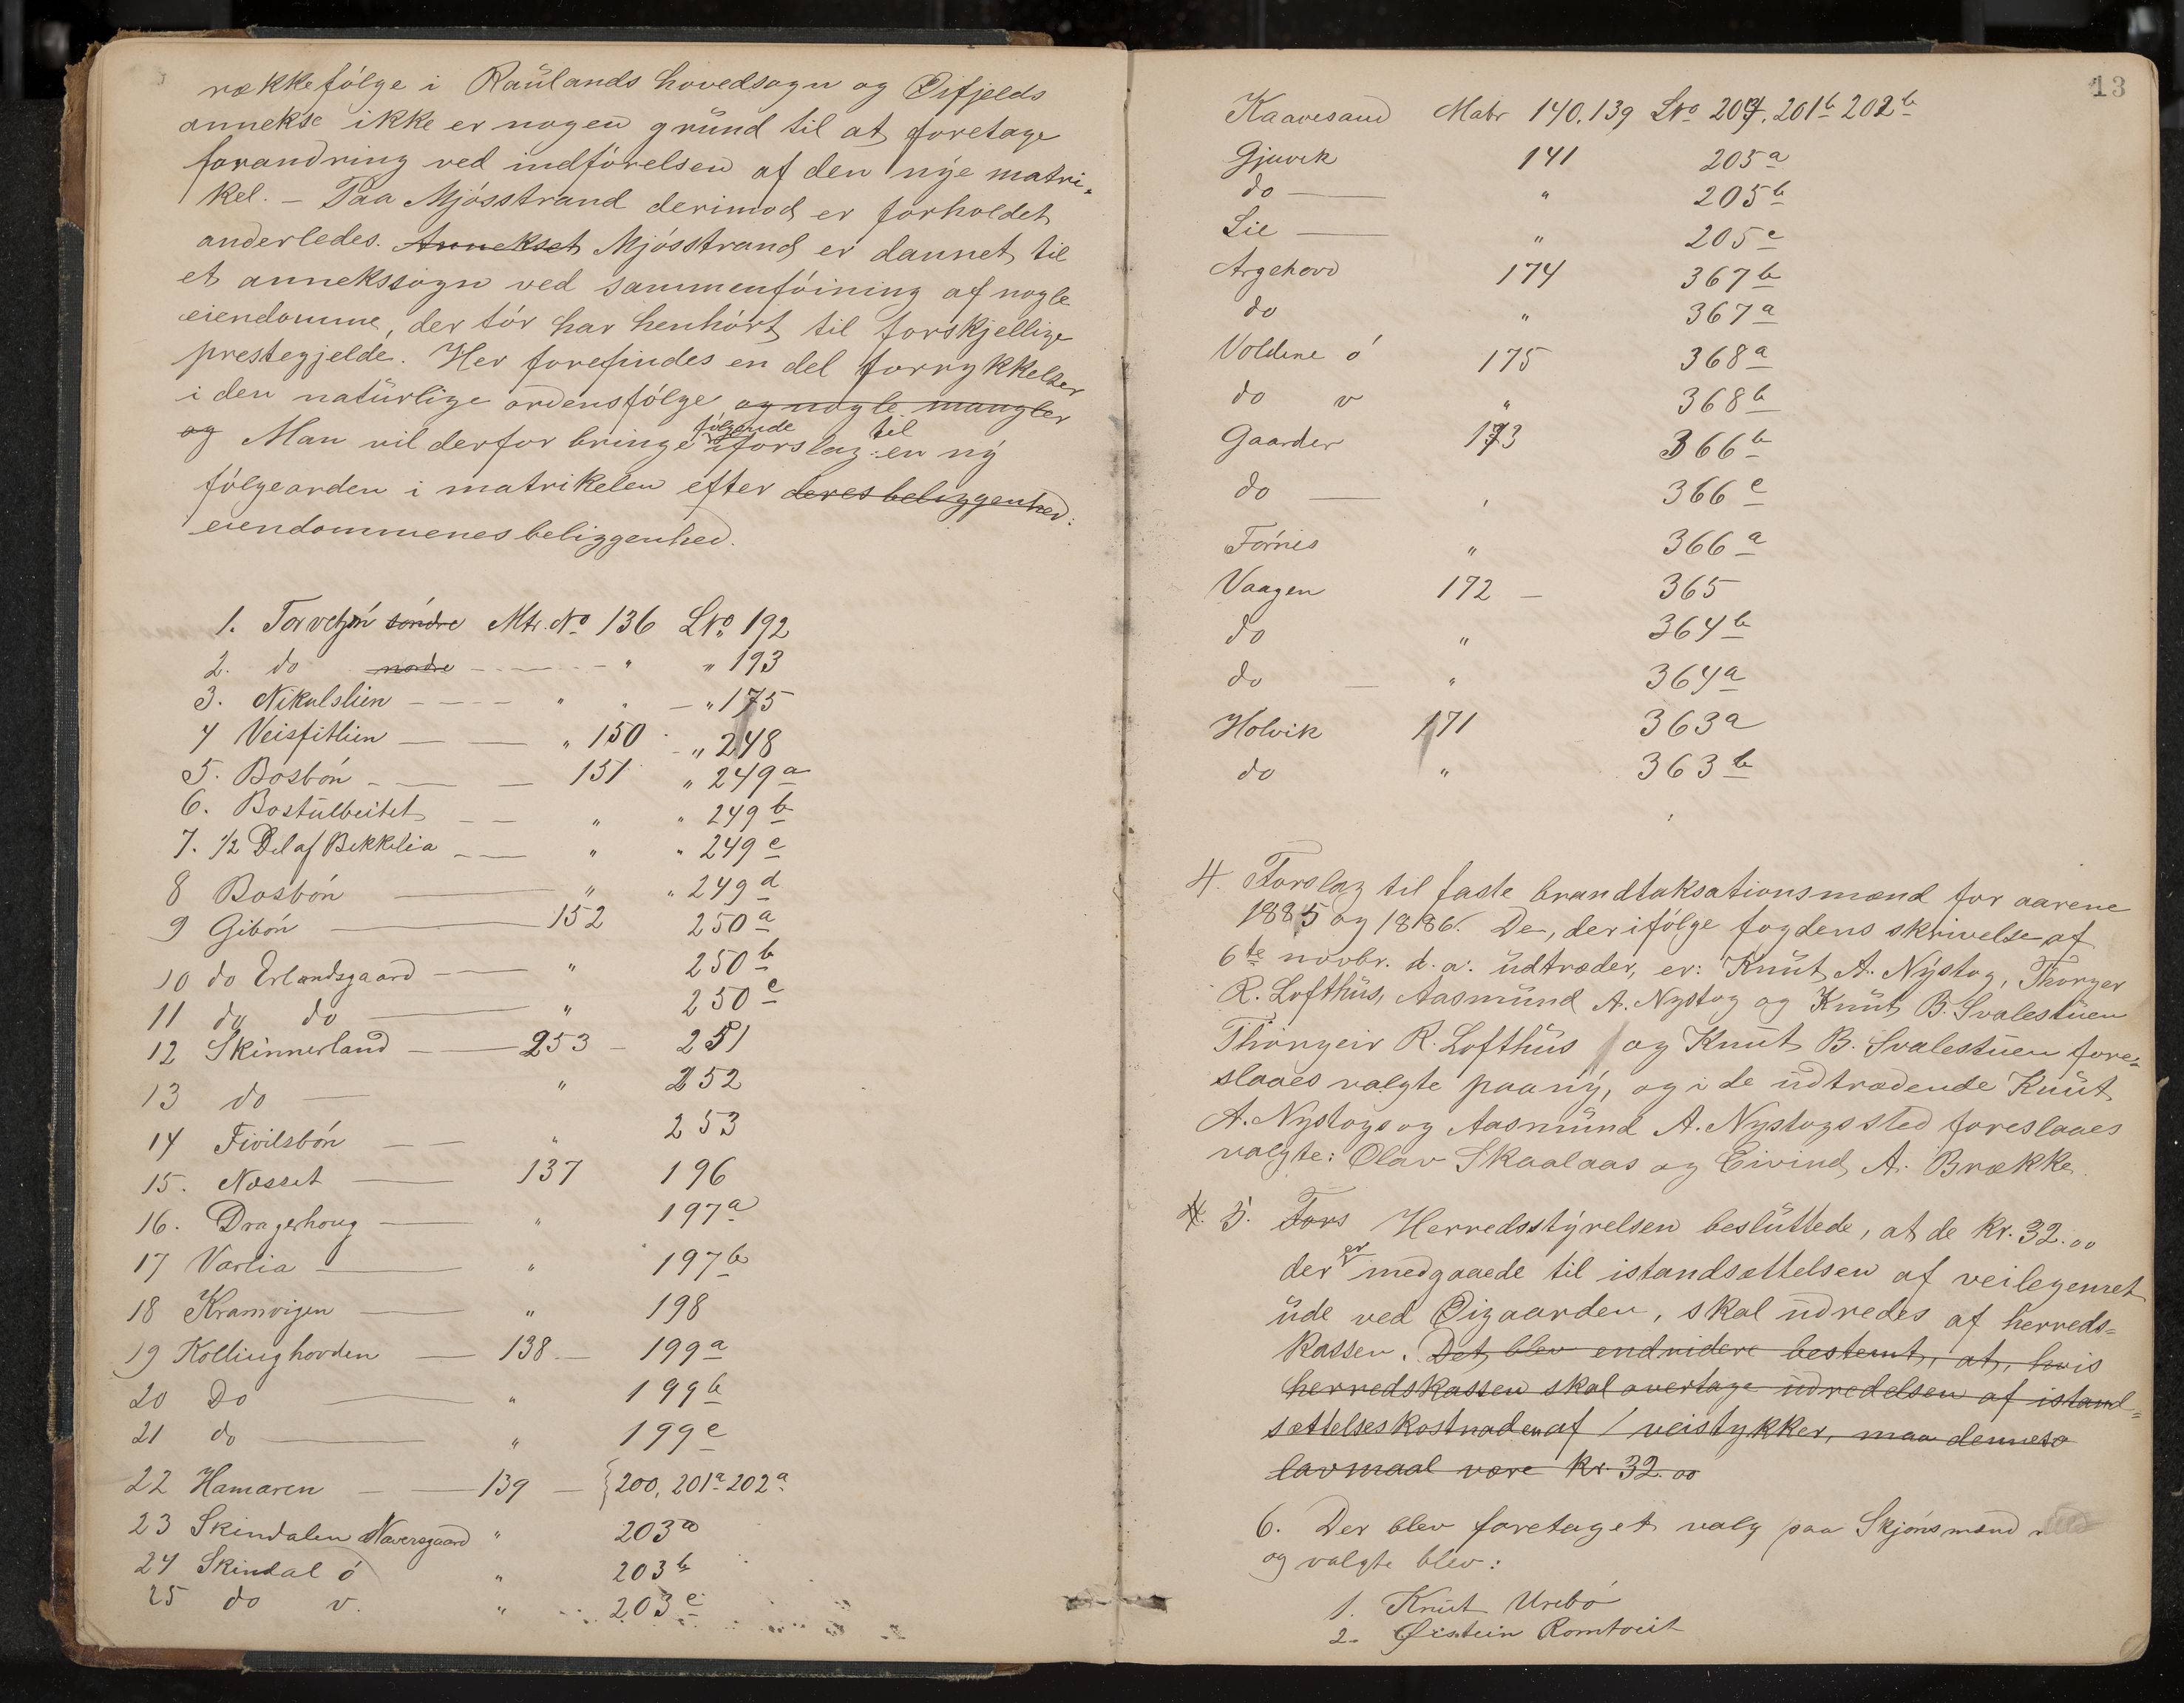 rækkefölge i Raulands hovedsogn og Öifjelds
annekse ikke er nogen grund til at foretage
forandring ved indförelsen af den nye matri-
kel. – Paa Mjösstrand derimod er forholdet
anderledes. Annekset Mjösstrand er dannet til
et annekssogn ved sammenföining af nogle
eiendomme, der för har henhört til forskjellige
prestegjelde. Her forefindes en del forrykkelser
i den naturlige ordensfölge og nogle mangler
og Man vil derfor bringe følgende i forslag: til en ny
fölgeorden i matrikelen efter deres beliggenhed:
eiendommenes beliggenhed.
1. Torvetjön söndre Mtr. No 136 LNo 192
2. do nordre " " 193
3. Nikulslien " " – " 175
4 Veisfitlien " 150 " 248
5. Bosbón 151 " 249a
6. Bostulbeitet " " 249b
7. 1/2 Del af Bekkelia " " 249c
8 Bosbón " " 249d
9 Gibón 152 250a
10 do Erlandsgaard " 250b
11 do do " 250c
12 Skinnerland 253 – 251
13 do " 252
14 Fivilsbón " 253
15. Næsset 137 196
16. Dragerhoug " 197a
17 Varlia " 197b
18 Kramvigen " 198
19 Kollinghovden 138 199a
20 Do " 199b
21 do " 199c
22 Hamaren 139 {200, 201a 202a
23 Skindalen Naversgaard " 203a
24 Skindal ó " 203b
25 do v. " 203c
13
Kaavesand Matr 140, 139 LNo 204, 201b 202b
Gjuvik 141 205a
do " 205b
Lie " 205c
Argehovd 174 367b
do " 367a
Voldene ó 175 368a
do v " 368b
Gaarder 173 366b
do " 366c
Fornes " 366a
Vaagen 172 – 365
do " 364b
do " 364a
Holvik 171 363a
do " 363b
4. Forslag til faste brandtaksationsmænd for aarene
1885 og 1886. De, der ifölge fogdens skrivelse af
6te novbr. d.a. udtræder, er: Knut A. Nystog, Thorger
R. Lofthus, Aasmund A. Nystog og Knut B. Svalestuen
Thorgeir R. Lofthus og Knut B. Svalestuen fore-
slaaes valgte paany, og i de udtrædende Knut
A. Nystogs og Aasmund A. Nystogs sted foreslaaes
valgte: Olav Skaalaas og Eivind A. Brække.
4. 5. Fors Herredsstyrelsen besluttede, at de Kr. 32.00
der er medgaaede til istandsættelsen af veilegemet
ude ved Öigaarden, skal udredes af herreds-
kassen. Det blev endvidere bestemt, at, hvis
herredskassen skal overtage udredelsen af istand-
sættelseskostnaden af / veistykker, maa dennes
lavmaal være kr. 32.00
6. Der blev foretaget valg paa Skjönsmænd
og valgte blev:
1. Knut Urebö
2. Øistein Romtveit